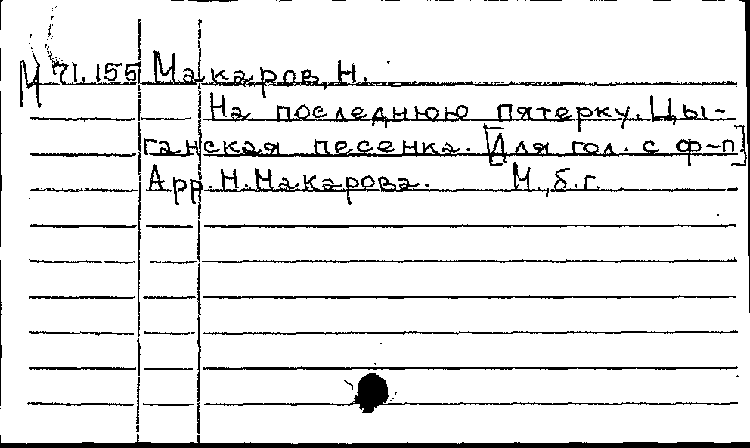 М 71.155 Макаров, Н.
На последнюю пятерку. Цы-
ганская песенка. [Для гол. с ф-п]
Арр. Н. Макарова. М., б.г.